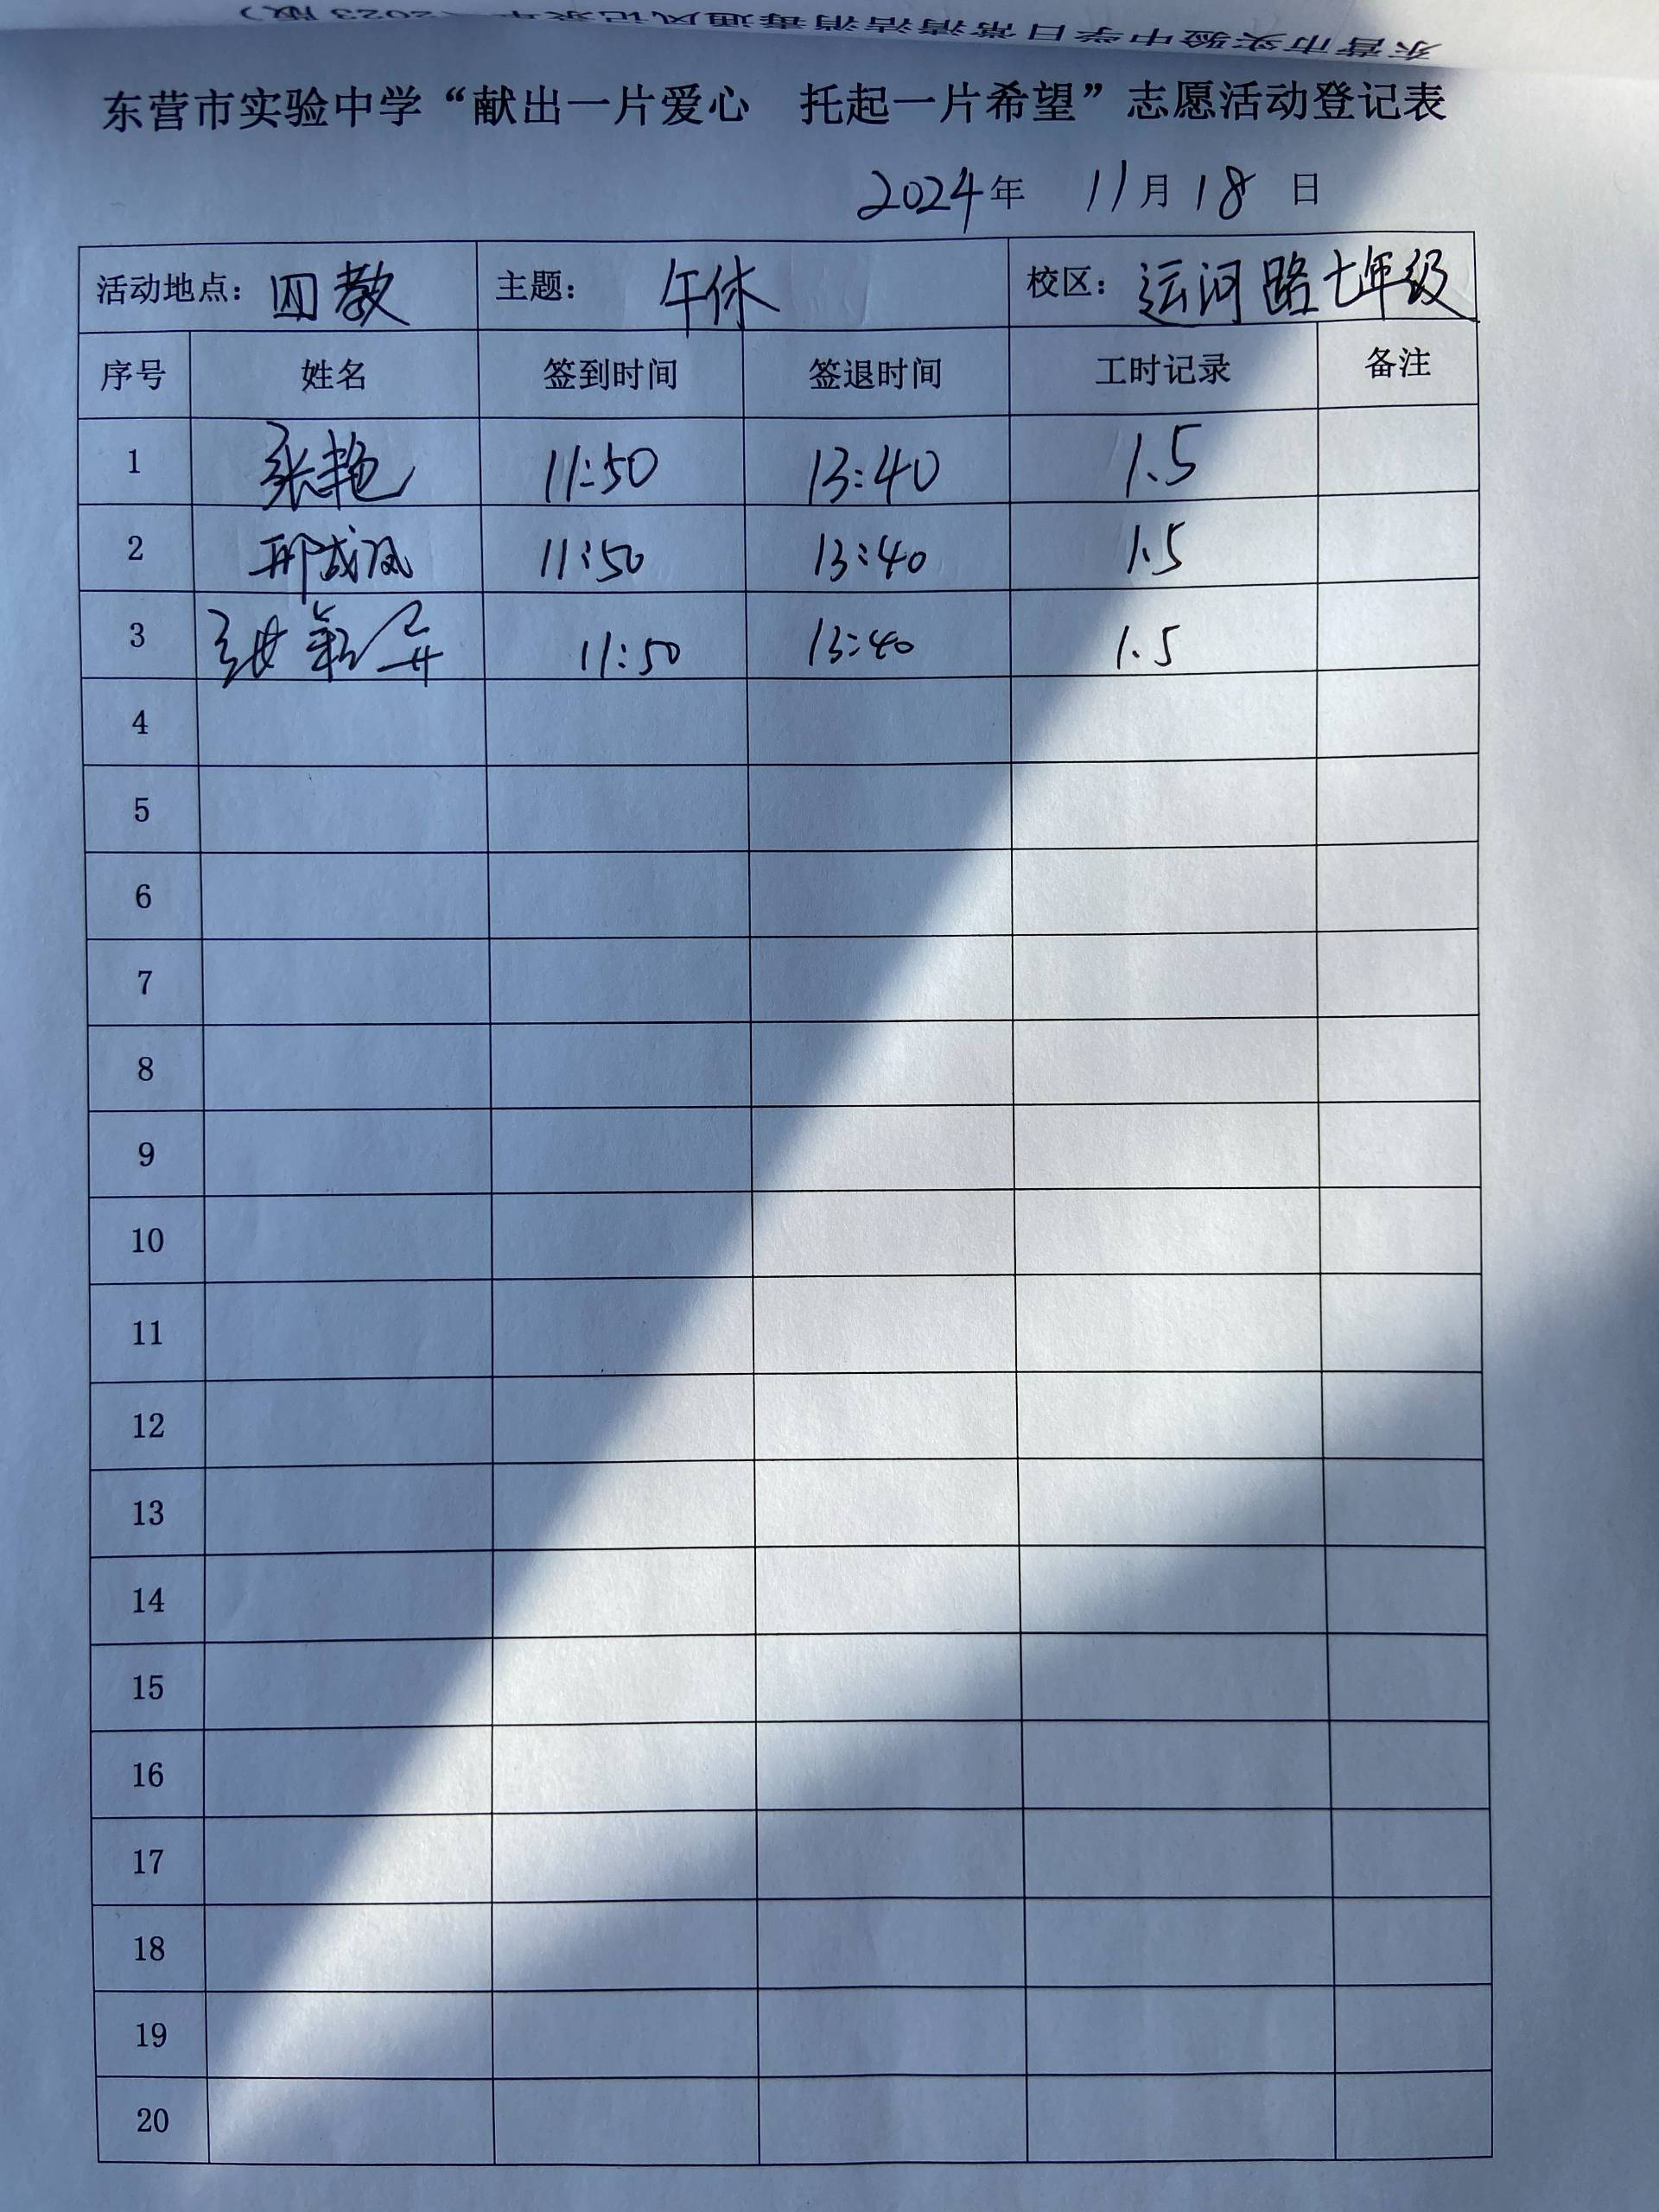 东营市实验中学“献出一片爱心 托起一片希望”志愿活动登记表
2024年 11月18日
活动地点：四教 主题：午休 校区：运河路七年级
序号 姓名 签到时间 签退时间 工时记录 备注
1 张艳 11:50 13:40 1.5
2 邢成凤 11:50 13:40 1.5
3 11:50 13:40 1.5
4
5
6
7
8
9
10
11
12
13
14
15
16
17
18
19
20